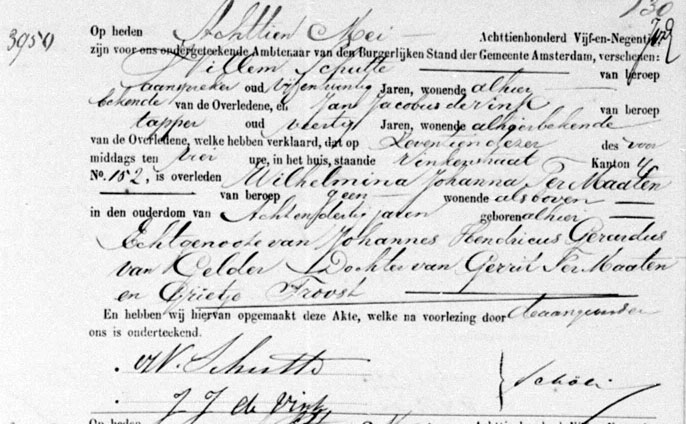 130
3950
Op heden Achttien Mei Achttienhonderd Vijf-en-Negentig
zijn voor ons ondergeteekende Ambtenaar van den Burgerlijken Stand der Gemeente Amsterdam, verschenen:
Willem Schutte van beroep
aanspreker oud vijfentwintig Jaren, wonende alhier
bekende van de Overledene, en Jan Jacobus de Vink van beroep
tapper oud veertig Jaren, wonende alhier bekende
van de Overledene, welke hebben verklaard, dat op Zeventien dezer des voor
middags ten drie ure, in het huis, staande Vinkenstraat Kanton 4
No. 152, is overleden Wilhelmina Johanna Ter Maaten
van beroep geen wonende als boven
in den ouderdom van Achtendertig jaren geboren alhier
Echtgenoote van Johannes Hendricus Gerardus
van Kelder Dochter van Gerrit Ter Maaten
en Grietje Troost
En hebben wij hiervan opgemaakt deze Akte, welke na voorlezing door de aangevers en
ons is onderteekend.
W. Schutte
J J de Vink
Op heden Achttienhonderd Vijf-en-Negentig